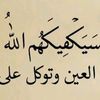 سَيَكْفِيكَهُمُ اللَّهُ
العين وتوكل على